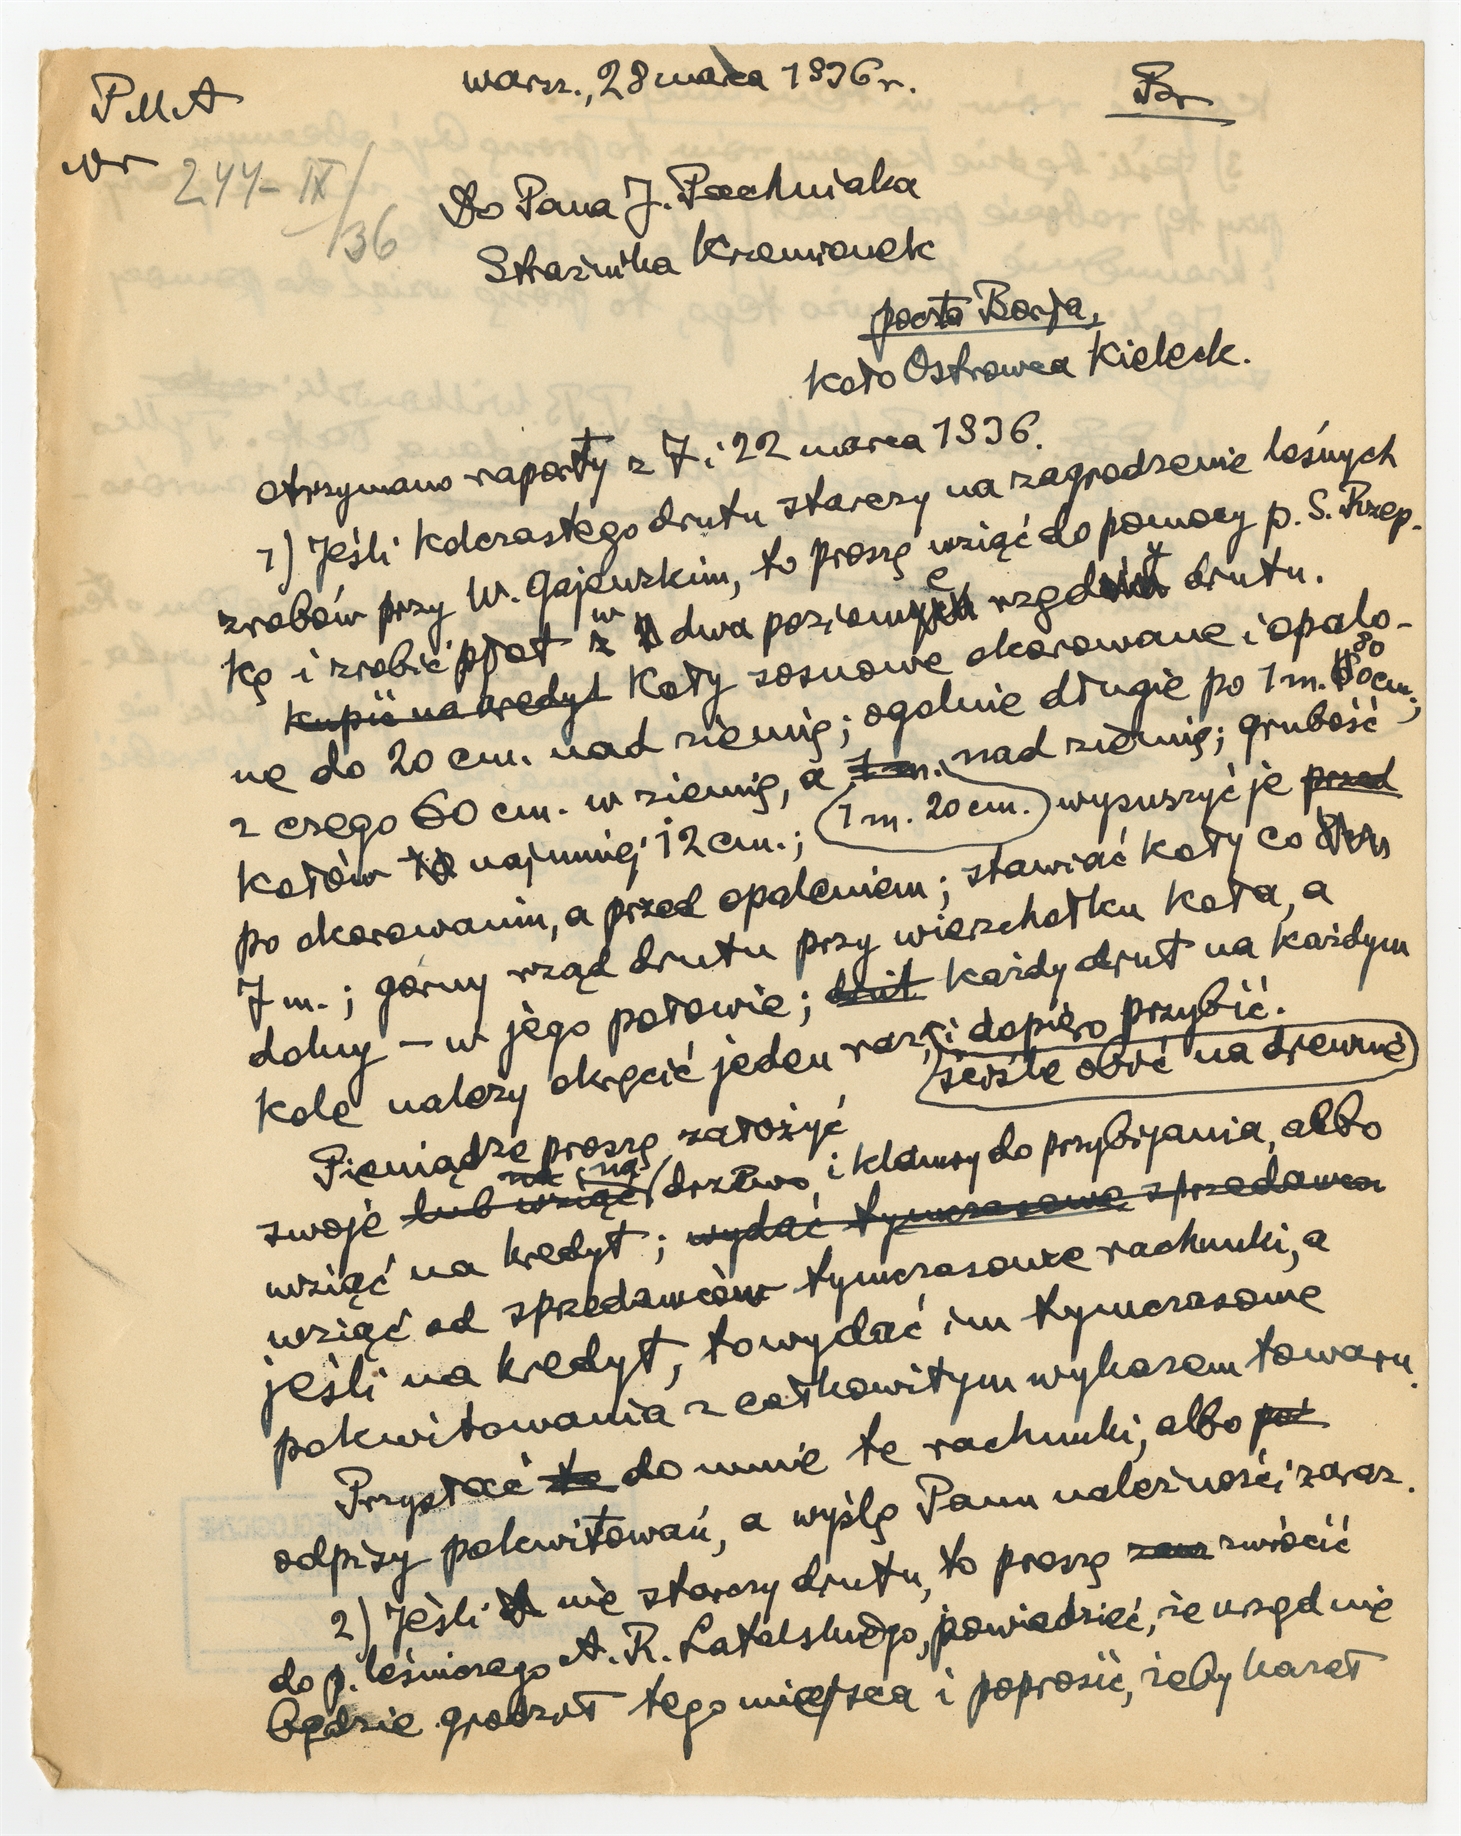 PMA
Warsz., 28 marca 1936 r.
Br
Nr 244-IX/36
Do Pana J. Pachniaka
Strażnika Krzemionek
poczta Borja,
Koło Ostrowca Kieleck.
Otrzymano raporty z 7 i 22 marca 1936.
1) Jeśli kolczastego drutu starczy na zagrodzenie leśnych
zrobów przy W. Gajewskim, to proszę wziąć do pomocy p. S. Rzep-
kę i zrobić płot w dwa poziome rzędy drutu.
kupić na kredyt Koły sosnowe okorowane i opalo-
ne do 20 cm. nad ziemię; ogólnie długie po 1 m. 80 cm.;
z czego 60 cm. w ziemię, a 1 m. nad ziemię; grubość
1 m. 20 cm.
kołów najmniej 12 cm.; wysuszyć je przed
po okorowaniu, a przed opaleniem; stawiać koły co
7 m.; górny rząd drutu przy wierzchołku koła, a
dolny – w jego połowie; drut każdy drut na każdym
kole należy okręcić jeden raz, i dopiero przybić.
ściśle obić na drewnie
Pieniądze proszę założyć
swoje lub wziąć na drzewo i klamry do przybijania, albo
wziąć na kredyt; wydać tymczasowe sprzedawca
wziąć od sprzedawców tymczasowe rachunki, a
jeśli na kredyt, to wydać im tymczasowe
pokwitowania z całkowitym wykazem towaru.
Przysłać te do mnie te rachunki, albo
odpisy pokwitowań, a wyślę Panu należność zaraz.
2) Jeśli nie starczy drutu, to proszę zwrócić
do p. leśniczego A. R. Latalskiego, powiedzieć, że urząd nie
będzie grodził tego miejsca i poprosić, żeby kazał